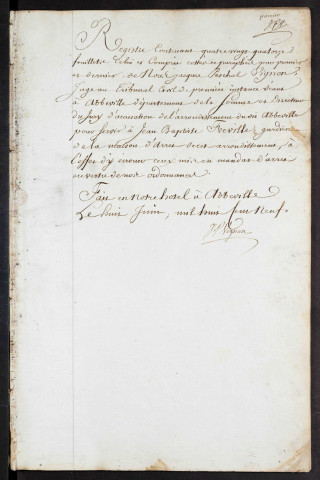 premier
Registre Contenant quatre vingt quatorze
feuillets celui ci Compris cottés et paraphés par premier
et dernier de Nous Jacque Paschal Pignon
Juge au tribunal Civil de premiere instance seant
a Abbeville département de la somme et Directeur
du Jury d'accusation de l'arrondissement dudit Abbeville
pour servir à Jean Baptiste gardien
de la maison d'arrêt dudit arrondissement, à
l'effet d'y ecrouer ceux mis en mandat d'arret
en vertu de nos ordonnances
Fait en notre hotel à Abbeville
Le huit Juin, mil huit cent Neuf.
Pignon